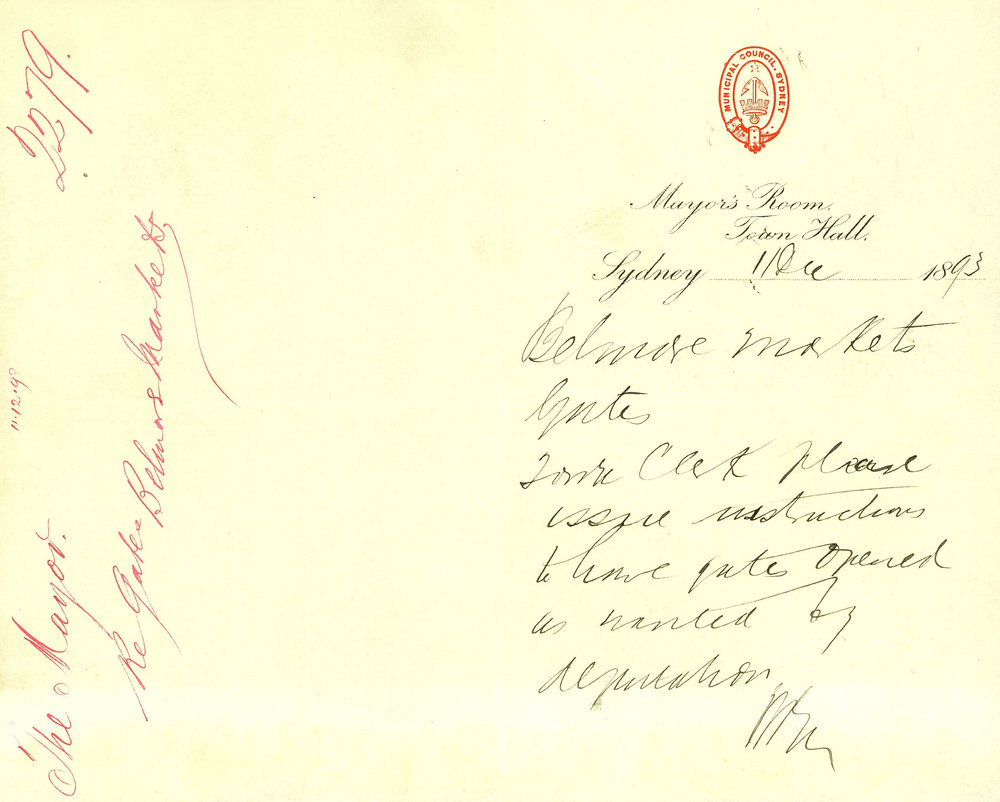 MUNICIPAL COUNCIL, SYDNEY
Mayor's Room,
Town Hall.
Sydney 11 Dec 1893
Belmore markets
Gates
Town Clerk please
issue instructions
to have gates opened
as wanted by
deputation
The Mayor.
11.12.93
Re Gates Belmore Markets
2279.